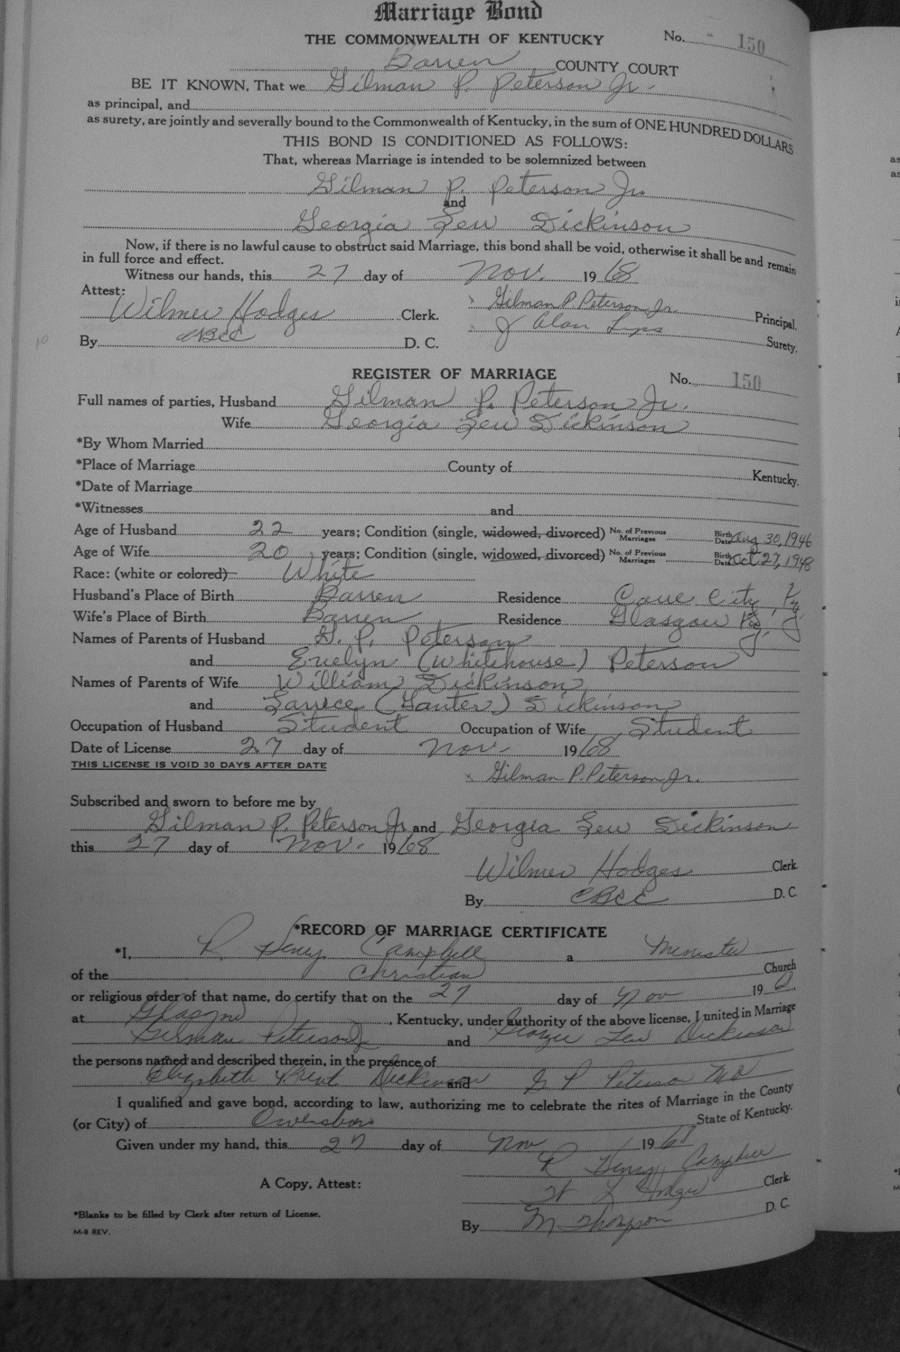 Marriage Bond
THE COMMONWEALTH OF KENTUCKY No. - 150
Barren COUNTY COURT
BE IT KNOWN, That we Gilman P. Peterson Jr.
as principal, and
as surety, are jointly and severally bound to the Commonwealth of Kentucky, in the sum of ONE HUNDRED DOLLARS
THIS BOND IS CONDITIONED AS FOLLOWS:
That, whereas Marriage is intended to be solemnized between
Gilman P. Peterson Jr.
and
Georgia Lew Dickinson
Now, if there is no lawful cause to obstruct said Marriage, this bond shall be void, otherwise it shall be and remain
in full force and effect.
Witness our hands, this 27 day of Nov. 1968
Attest: Gilman P. Peterson Jr. Principal.
Wilmer Hodges Clerk.
J Alan Surety.
By CBCC D. C.
REGISTER OF MARRIAGE No. 150
Full names of parties, Husband Gilman P. Peterson Jr.
Wife Georgia Lew Dickinson
*By Whom Married
*Place of Marriage County of Kentucky.
*Date of Marriage
*Witnesses and
Age of Husband 22 years; Condition (single, widowed, divorced) No. of Previous Marriages Birth Date Aug 30, 1946
Age of Wife 20 years; Condition (single, widowed, divorced) No. of Previous Marriages Birth Date Oct 27, 1948
Race: (white or colored) White
Husband's Place of Birth Barren Residence Cave City, Ky.
Wife's Place of Birth Barren Residence Glasgow Ky.
Names of Parents of Husband G. P. Peterson
and Evelyn (Whitehouse) Peterson
Names of Parents of Wife William Dickinson
and (Ganter) Dickinson
Occupation of Husband Student Occupation of Wife Student
Date of License 27 day of Nov. 1968
THIS LICENSE IS VOID 30 DAYS AFTER DATE
x Gilman P. Peterson Jr.
Subscribed and sworn to before me by
Gilman P. Peterson Jr. and Georgia Lew Dickinson
this 27 day of Nov. 1968
Wilmer Hodges Clerk
By CBCC D. C
*RECORD OF MARRIAGE CERTIFICATE
*I, R. Henry Campbell a Minister
of the Christian Church
or religious order of that name, do certify that on the 27 day of Nov 196
at Glasgow, Kentucky, under authority of the above license, I united in Marriage
Gilman Peterson Jr and Georgia Lew Dickinson
the persons named and described therein, in the presence of
Elizabeth Brent Dickinson and G P Peterson MD
I qualified and gave bond, according to law, authorizing me to celebrate the rites of Marriage in the County
(or City) of Owensboro State of Kentucky.
Given under my hand, this 27 day of Nov 196
R Henry Campbell
A Copy, Attest: W L Hodges Clerk
*Blanks to be filled by Clerk after return of License.
By M Thompson D. C.
M-8 REV.